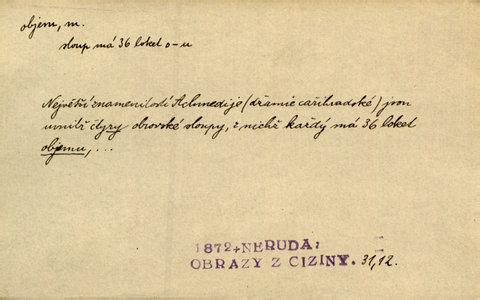 objem, m.
sloup má 36 loket o-u
Největší znamenitostí Achmedije (džamie cařihradské) jsou
uvnitř čtyry obrovské sloupy, z nichž každý má 36 loket
objemu, ...
1872, NERUDA,
OBRAZY Z CIZINY. 31,12.